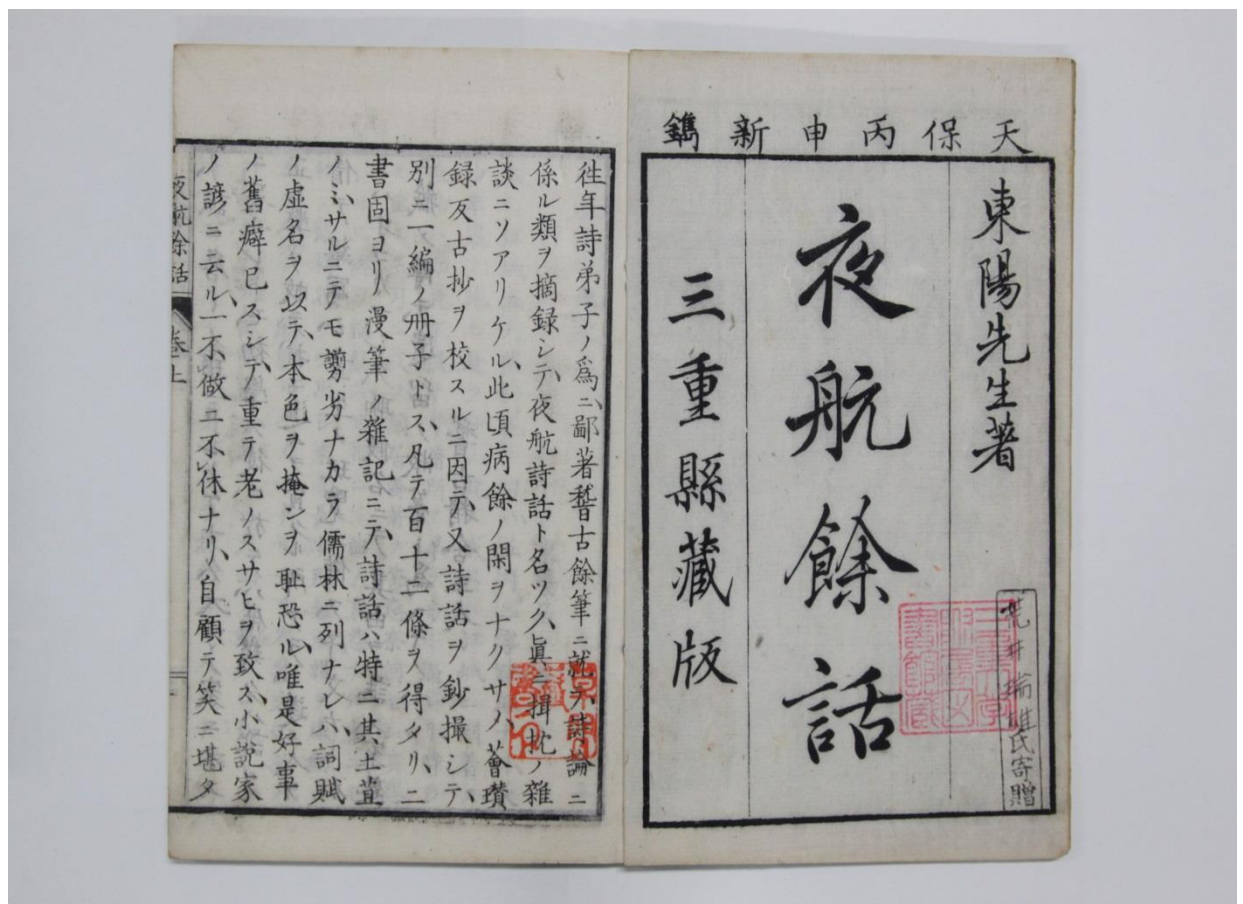 天保丙申新鐫
東陽先生著
夜航餘話
三重縣藏版
荒井瑞雄氏寄贈
往年詩弟子ノ爲ニ、鄙著稽古餘筆ニ就テ、詩論ニ
係ル類ヲ摘録シテ、夜航詩話ト名ツク、眞ニ揖柁ノ雜
談ニソアリケル、此頃病餘ノ閑ヲナクサメ、薈瓚
録及古抄ヲ校スルニ因テ、又詩話ヲ鈔撮シテ、
別ニ一編ノ冊子トス、凡テ百十二條ヲ得タリ、二
書固ヨリ漫筆ノ雜記ニテ、詩話ハ特ニ其土苴
ノミ、サルニテモ謭劣ナカラ儒林ニ列ナレハ、詞賦
ノ虚名ヲ以テ、本色ヲ掩ンヲ耻恐ル、唯是好事
ノ舊癖已スシテ、重テ老ノスサヒヲ致ス、小説家
ノ諺ニ云ル、一不做二不休ナリ、自顧テ笑ニ堪タ
夜航餘話 卷上